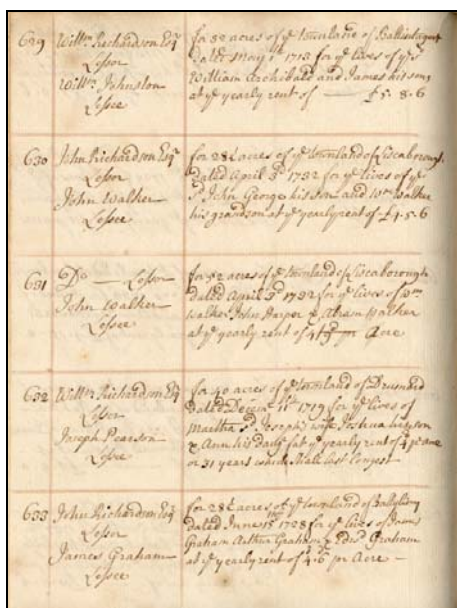 629 Willm Richardson Esqr
Lessor
Willm Johnston
Lessee
for 52 acres of ye townland of
dated May 1st 1713 for ye lives of ye sd
William Archibald and James his sons
at ye yearly rent of — £5.8.6
630 John Richardson Esqr
Lessor
John Walker
Lessee
for 28½ acres of ye townland of Liscaborough
dated April 3d 1732 for ye lives of ye
sd John George his son and Wm Walker
his grandson at ye yearly rent of £4.5.6
631 Do — Lessor
John Walker
Lessee
for 52 acres of ye townland of Liscaborough
dated April 3d 1732 for ye lives of Wm
Walker John Harper & Abram Walker
at ye yearly rent of pr Acre
632 Willm Richardson Esqr
Lessor
Joseph Pearson
Lessee
for 40 acres of ye townland of
dated Decem: 11th 1719 for ye lives of
Martha sd Joseph's wife Joshua his son
& Ann his daugr at ye yearly rent of
or 31 years which shall last longest
633 John Richardson Esqr
Lessor
James Graham
Lessee
for 28½ acres of ye townland of
dated June 15th 1728 for ye lives of James
Graham Arthur Graham & Edwd Graham
at ye yearly rent of 4.6 pr Acre —